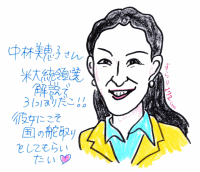 中林美恵子さん
米大統領選
解説で
引っぱりだこ!!
彼女にこそ
国の舵取り
をしてもらい
たい♥